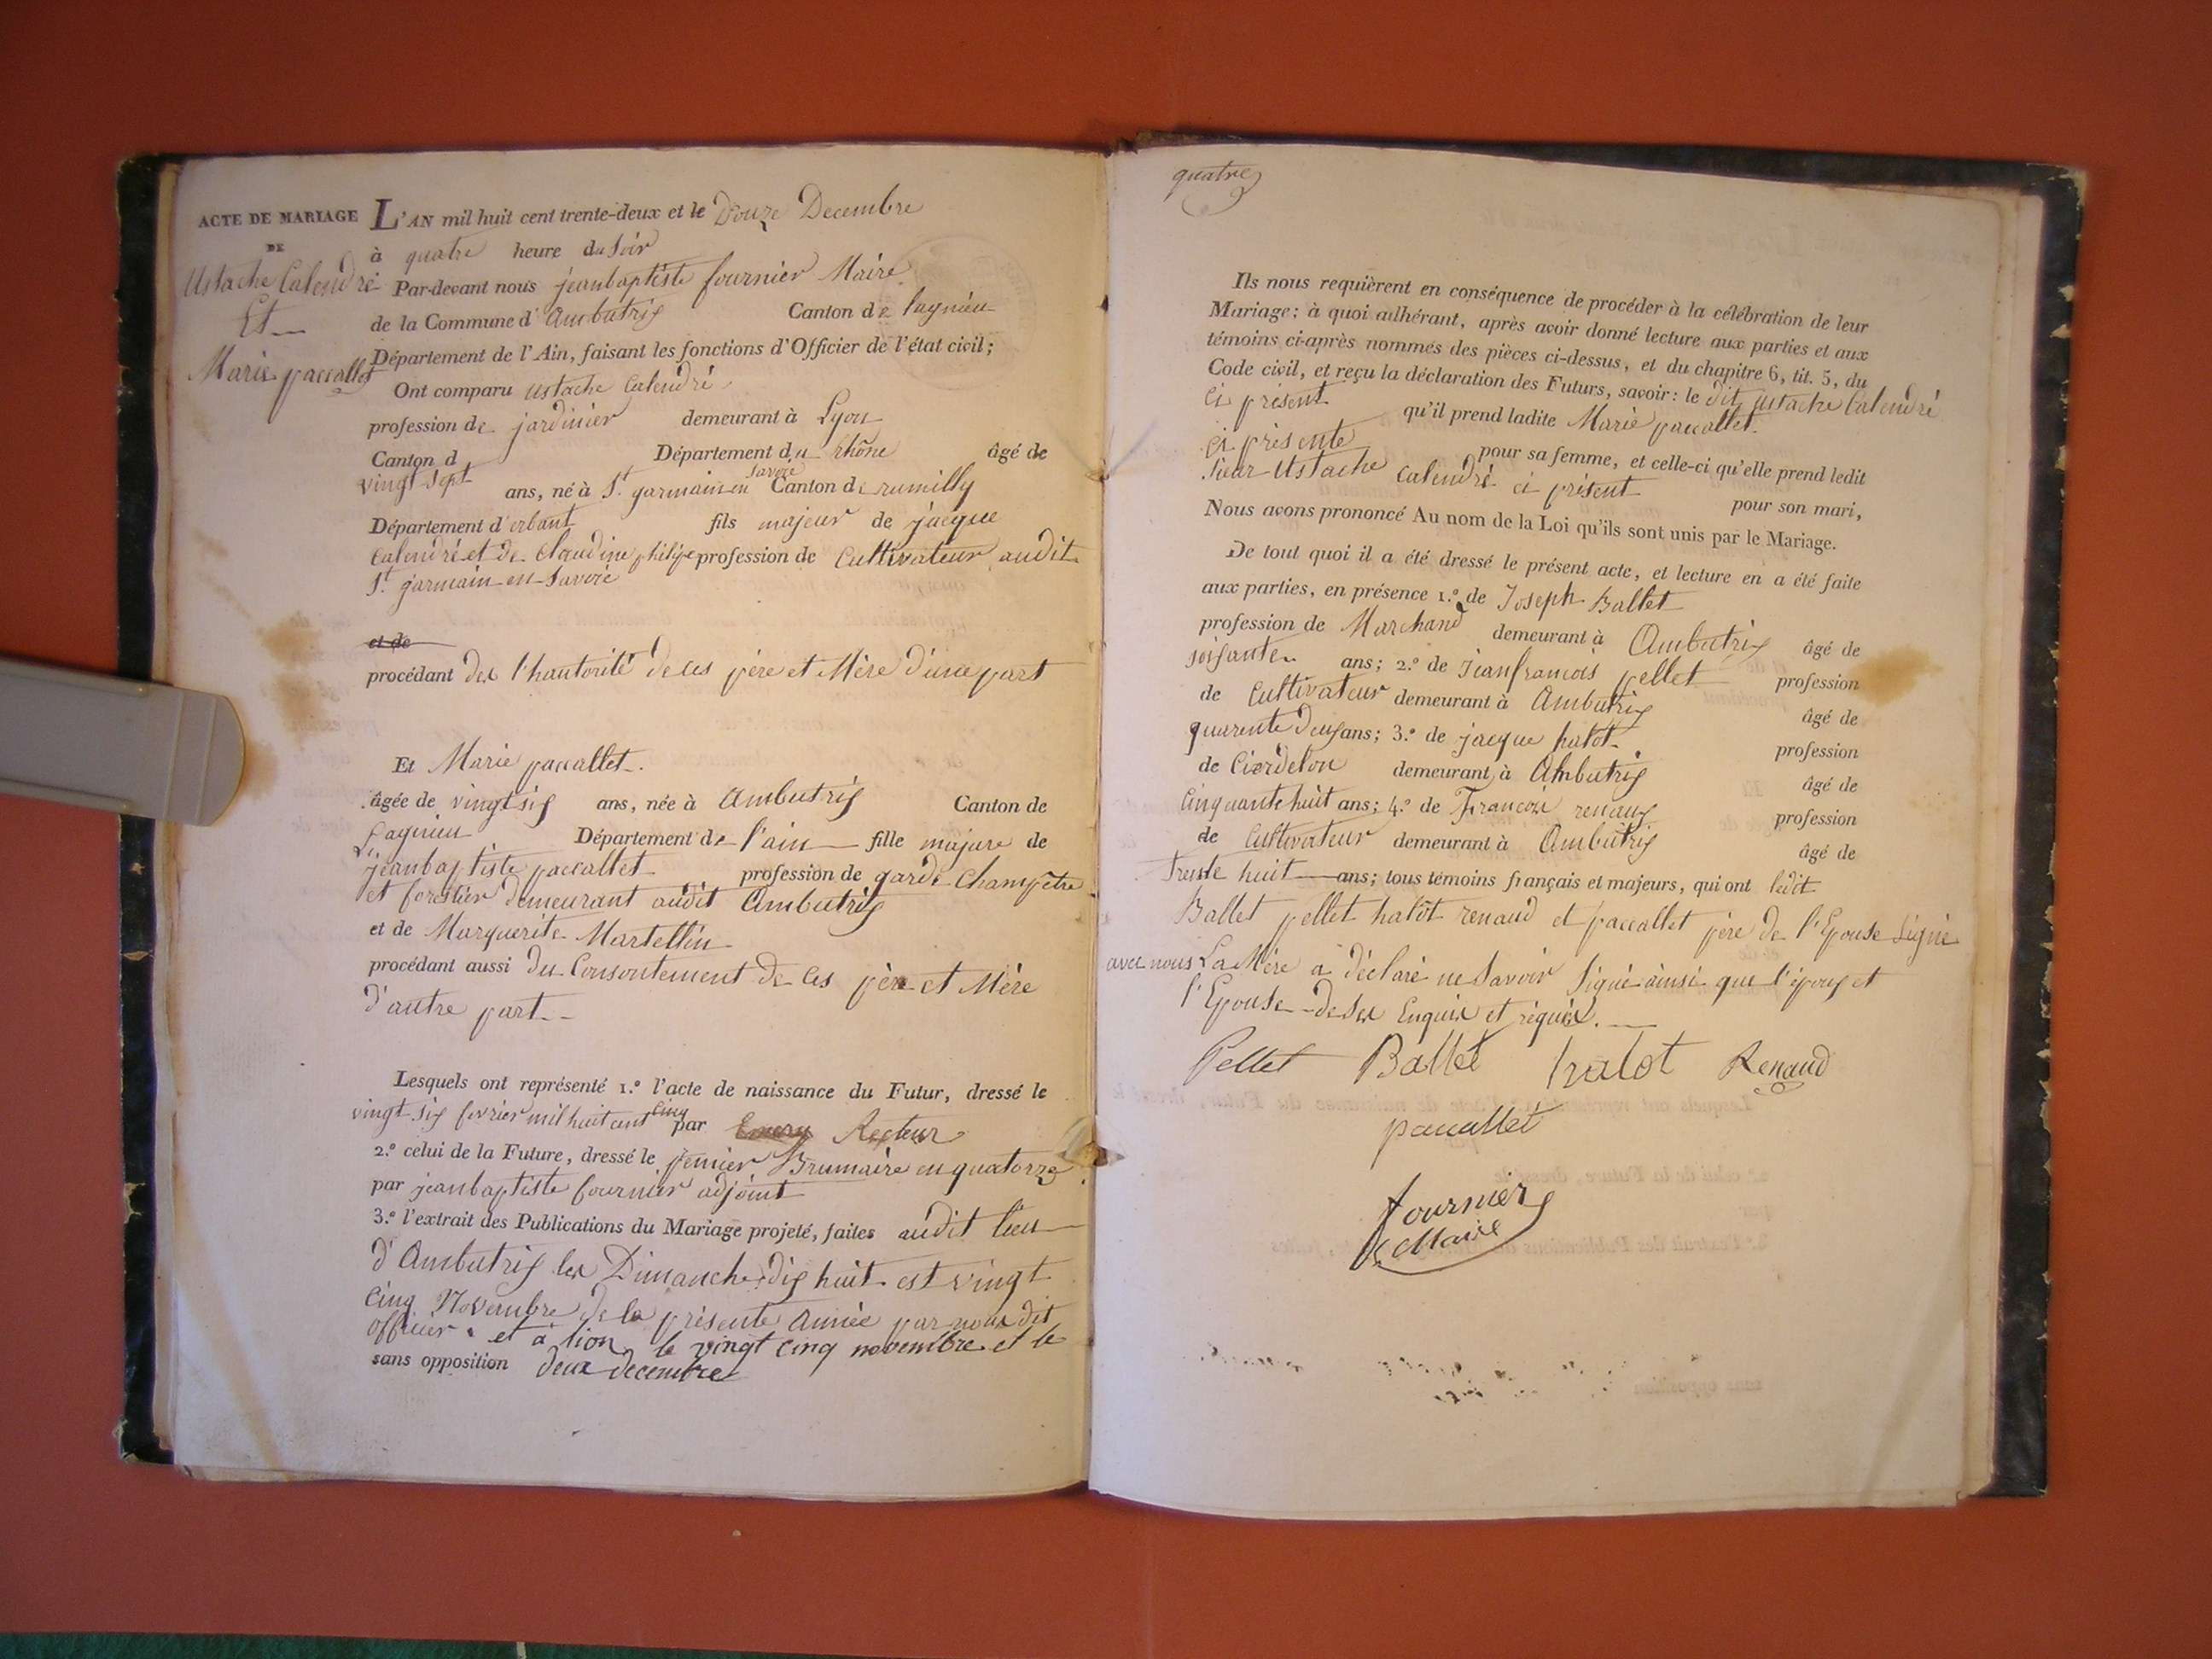 ACTE DE MARIAGE
DE
Ustache Calendré
Et
Marie paccallet
L'AN mil huit cent trente-deux et le Douze Decembre
à quatre heure du Soir
Par-devant nous jeanbaptiste fournier Maire
de la Commune d' Ambutrix Canton de lagnieu
Département de l'Ain, faisant les fonctions d'Officier de l'état civil;
Ont comparu ustache Calendré
profession de jardinier demeurant à Lyon
Canton d Département du rhône âgé de
vingt sept ans, né à St. garmain en Savoie Canton de rumilly
Département d' fils majeur de jacque
Calendré et de Claudine philipe profession de Cultivateur audit
St. garmain en Savoie
et de
procédant des l'hautorité de ces père et Mère d'une part
Et Marie paccallet.
âgée de vingt six ans, née à Ambutrix Canton de
Lagnieu Département de l'ain fille majure de
jeanbaptiste paccallet profession de garde Champêtre
et forestier demeurant audit Ambutrix
et de Marguerite Martellin
procédant aussi du Consontement de ces père et Mère
d'autre part
Lesquels ont représenté 1.º l'acte de naissance du Futur, dressé le
vingt six fevrier mil huit cent cinq par Recteur
2.º celui de la Future, dressé le premier Brumaire en quatorze
par jeanbaptiste fournier adjoint
3.º l'extrait des Publications du Mariage projeté, faites audit lieu
d'Ambutrix les Dimanche dix huit est vingt
Cinq Novembre de la présente Année par nous dit
officier et a lion le vingt cinq novembre et le
sans opposition deux decembre
quatre
Ils nous requièrent en conséquence de procéder à la célébration de leur
Mariage; à quoi adhérant, après avoir donné lecture aux parties et aux
témoins ci-après nommés des pièces ci-dessus, et du chapitre 6, tit. 5, du
Code civil, et reçu la déclaration des Futurs, savoir: le dit Ustache Calendré
ci présent qu'il prend ladite Marie paccallet.
ci présente pour sa femme, et celle-ci qu'elle prend ledit
Sieur Ustache Calendré ci présent pour son mari,
Nous avons prononcé Au nom de la Loi qu'ils sont unis par le Mariage.
De tout quoi il a été dressé le présent acte, et lecture en a été faite
aux parties, en présence 1.º de Joseph Ballet
profession de Marchand demeurant à Ambutrix âgé de
soisante ans; 2.º de Jeanfrancois pellet profession
de Cultivateur demeurant à Ambutrix âgé de
quarente deux ans; 3.º de jacque halot profession
de demeurant à Ambutrix âgé de
Cinquante huit ans; 4.º de Francois renaux profession
de Cultivateur demeurant à Ambutrix âgé de
Trente huit ans; tous témoins français et majeurs, qui ont ledit
Ballet pellet halot renaud et paccallet père de l'Epouse Signé
avec nous La Mère a déclaré ne Savoir Signé ainsi que l'époux et
l'Epouse de ses Enquis et réquis.
Pellet Ballet halot Renaud
paccallet
fournier
Maire